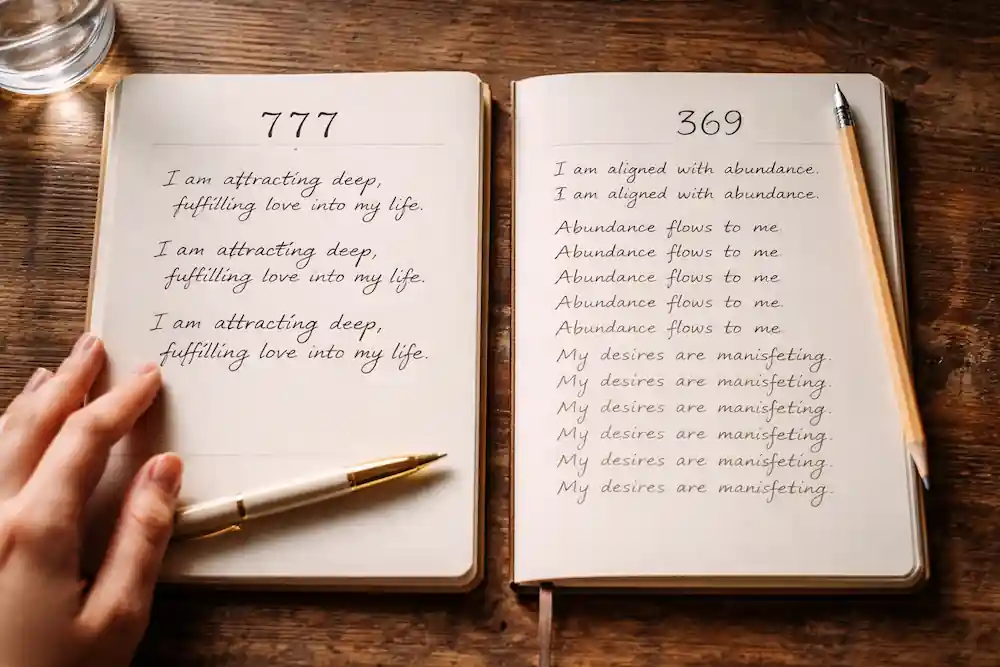 777
I am attracting deep,
fulfilling love into my life.
I am attracting deep,
fulfilling love into my life.
I am attracting deep,
fulfilling love into my life.
369
I am aligned with abundance.
I am aligned with abundance.
Abundance flows to me
Abundance flows to me
Abundance flows to me
Abundance flows to me.
Abundance flows to me
My desires are manisfeting.
My desires are manisfeting.
My desires are manisfeting.
My desires are manisfeting.
My desires are manisfeting.
My desires are manisfeting.